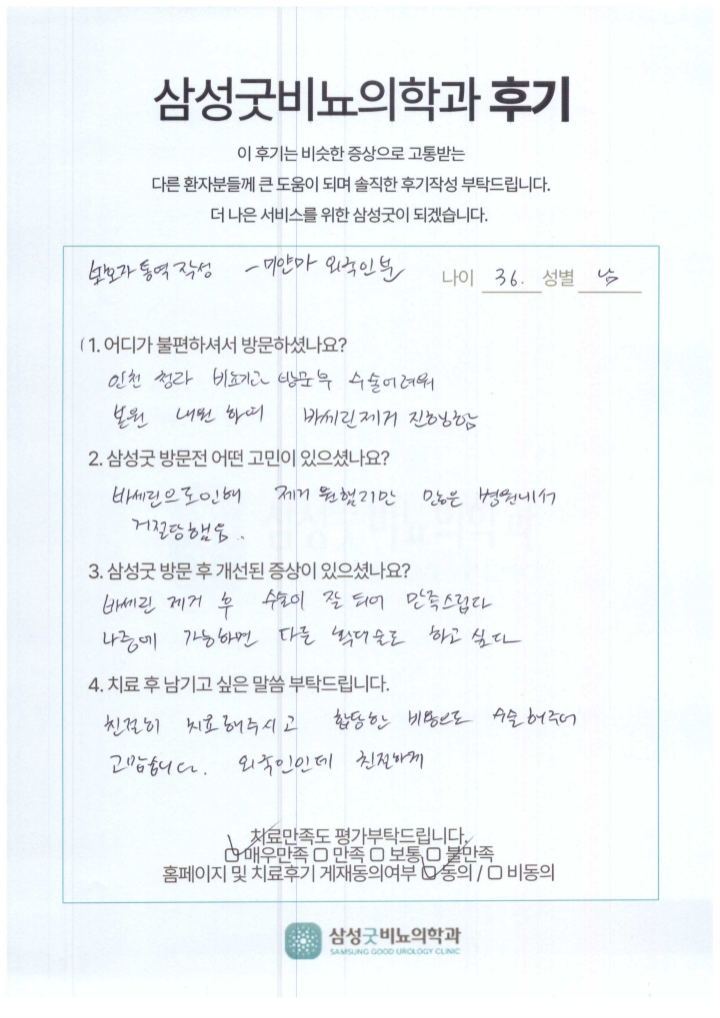 삼성굿비뇨의학과 후기
이 후기는 비슷한 증상으로 고통받는
다른 환자분들께 큰 도움이 되며 솔직한 후기작성 부탁드립니다.
더 나은 서비스를 위한 삼성굿이 되겠습니다.
보호자 통역 작성 - 미얀마 외국인분 나이 36. 성별 남
1. 어디가 불편하셔서 방문하셨나요?
인천 청라 비뇨기과 방문후 수술어려워
본원 내원 하여 바세린제거 진행함
2. 삼성굿 방문전 어떤 고민이 있으셨나요?
바세린으로인해 제거 원했지만 많은 병원에서
거절당했음..
3. 삼성굿 방문 후 개선된 증상이 있으셨나요?
바세린 제거 후 수술이 잘 되어 만족스럽다
나중에 가능하면 다른 확대술도 하고 싶다
4. 치료 후 남기고 싶은 말씀 부탁드립니다.
친절히 치료해주시고 합당한 비용으로 수술해주어
고맙습니다. 외국인인데 친절하게
치료만족도 평가부탁드립니다.
매우만족 만족 보통 불만족
홈페이지 및 치료후기 게재동의여부 동의 / 비동의
삼성굿비뇨의학과
SAMSUNG GOOD UROLOGY CLINIC